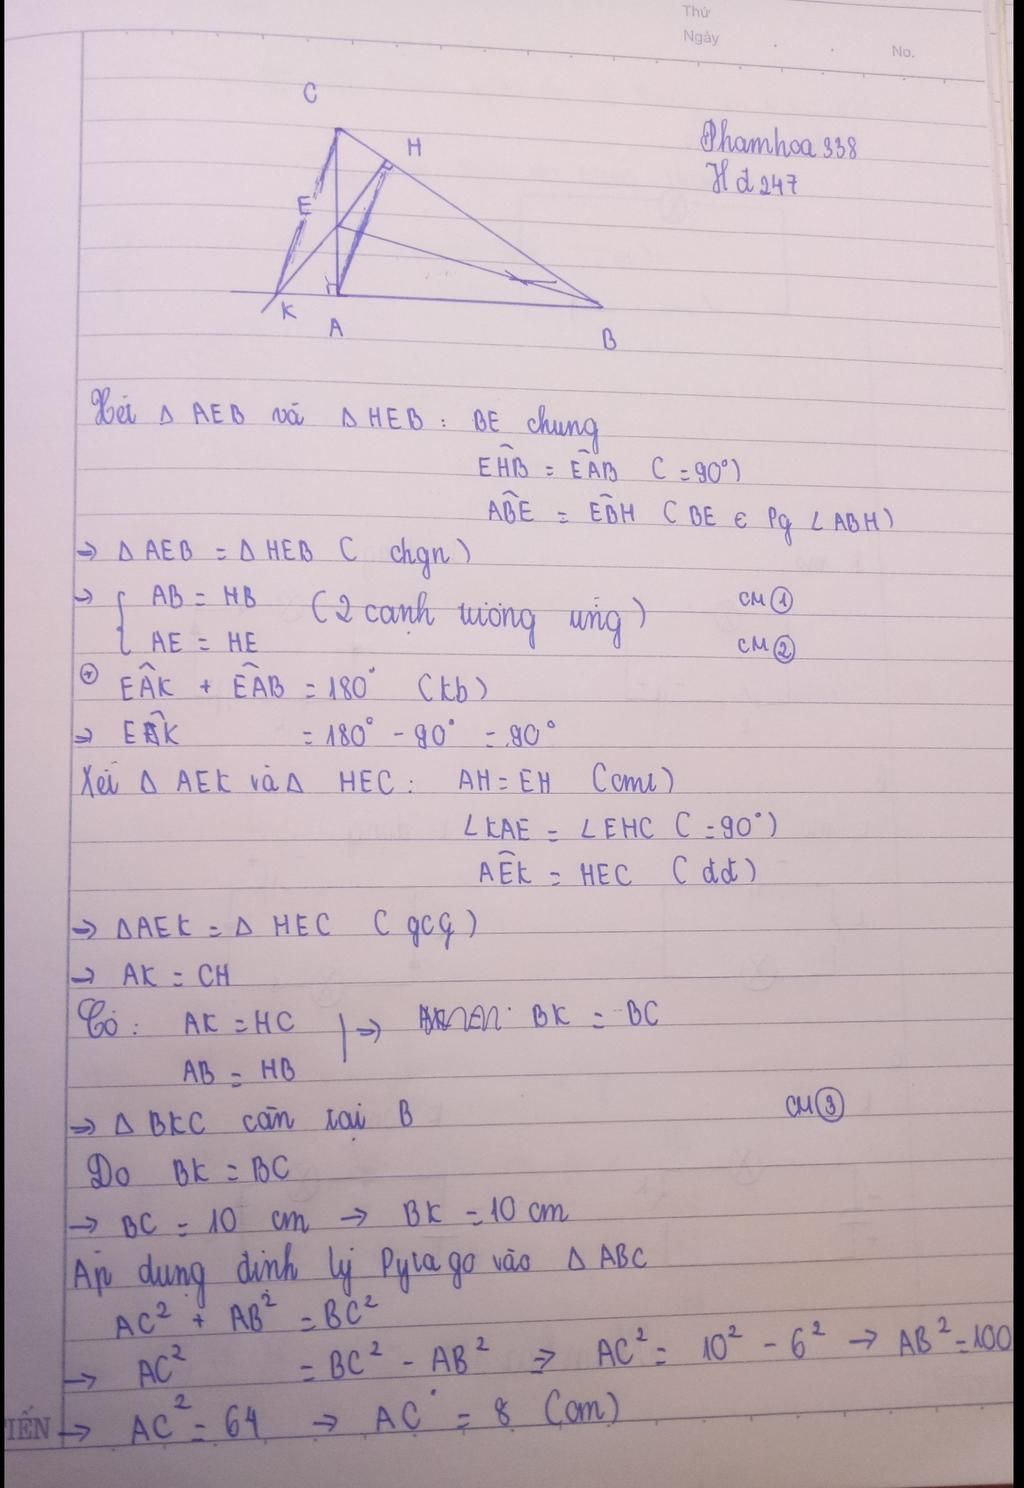 Thứ
Ngày
No.
Phamhoa 338
Hđ 247
C
H
E
K
A
B
Xét Δ AEB và Δ HEB : BE chung
EĤB = EÂB ( = 90°)
AB̂E = EB̂H ( BE ∈ Pg ∠ABH )
→ Δ AEB = Δ HEB ( chgn )
→ { AB = HB ( 2 cạnh tương ứng ) CM ①
AE = HE CM ②
EÂK + EÂB = 180° (kb)
→ EÂK = 180° - 90° = 90°
Xét Δ AEK và Δ HEC : AH = EH (cm1)
∠KAE = ∠EHC ( = 90°)
AÊK = HEC ( đđ )
→ ΔAEK = Δ HEC ( gcg )
→ AK = CH
Có : AK = HC | → BK = BC
AB = HB
→ Δ BKC cân tại B CM ③
Do BK = BC
→ BC = 10 cm → BK = 10 cm
Áp dụng định lý Pytago vào Δ ABC
AC² + AB² = BC²
→ AC² = BC² - AB² ⇒ AC² = 10² - 6² → AB² = 100
IẾN → AC² = 64 → AC = 8 (cm)